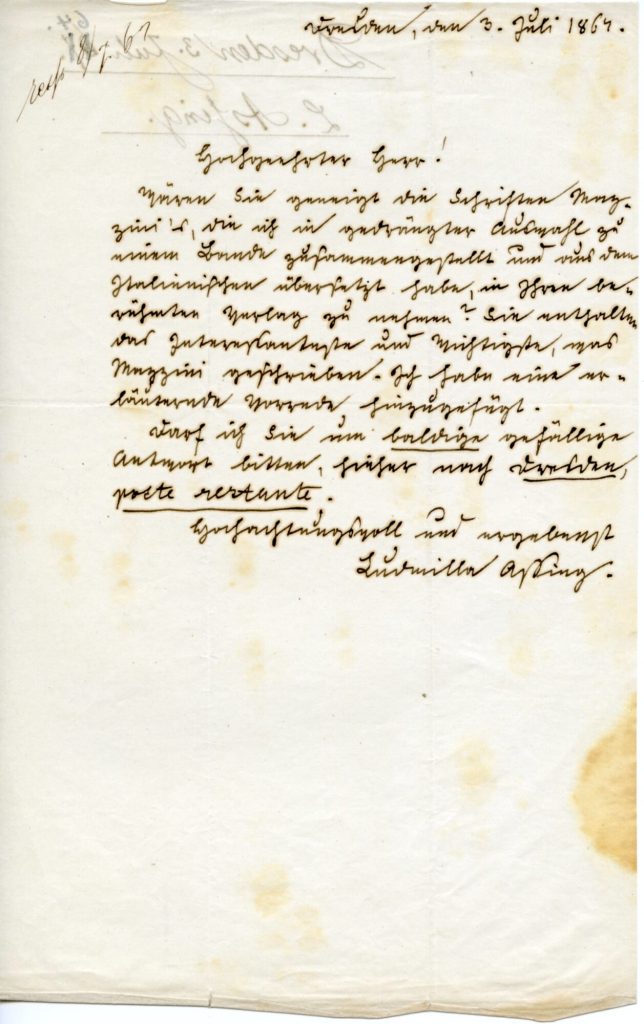 Dresden, den 3. Juli 1867.
Dresden 3. Juli
L. Assing.
Hochgeehrter Herr!
Wären Sie geneigt die Schriften Maz-
zini's, die ich in gedrängter Auswahl zu
einem Bande zusammengestellt und aus dem
Italienischen übersetzt habe, in Ihren be-
rühmten Verlag zu nehmen? Sie enthalten
das Interessanteste und Wichtigste, was
Mazzini geschrieben. Ich habe eine er-
läuternde Vorrede hinzugefügt.
Darf ich Sie um baldige gefällige
Antwort bitten, hieher nach Dresden,
poste restante.
Hochachtungsvoll und ergebenst
Ludmilla Assing.